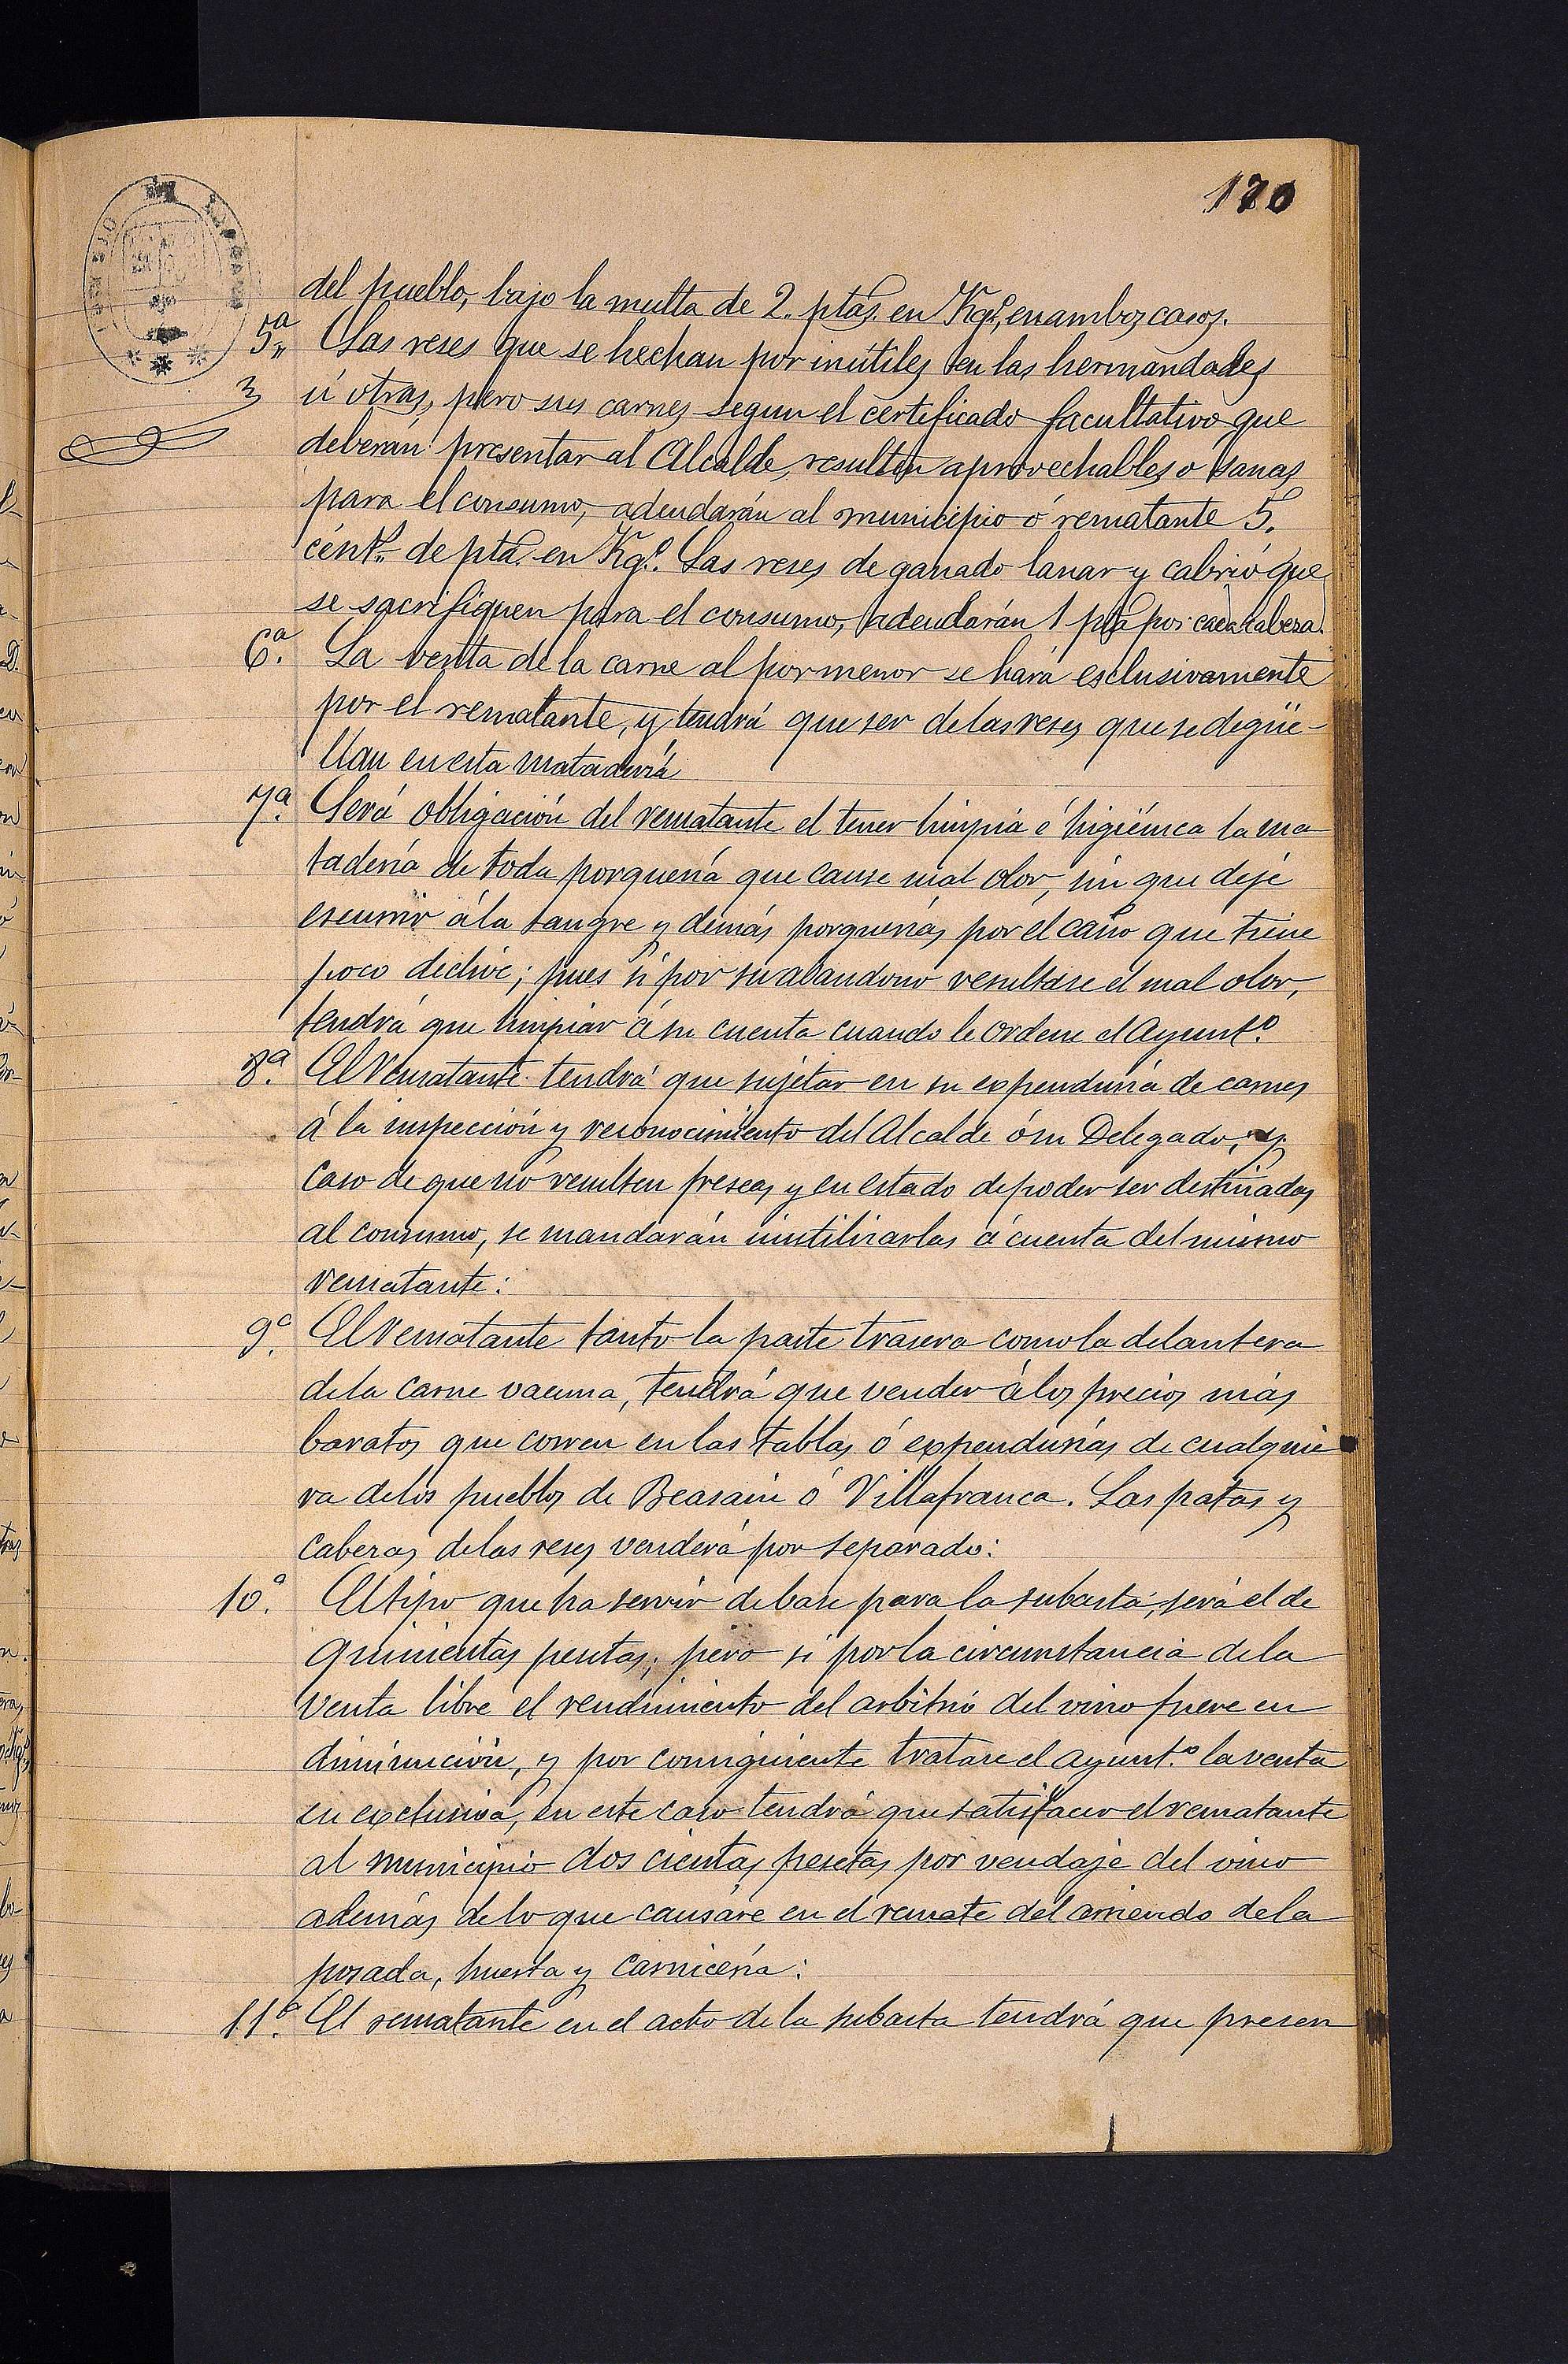 170
del pueblo, bajo la multa de 2. ptas. en Kgº, en ambos casos.
5ª Las reses que se hechan por inútiles en las hermandades
ú otras, pero sus carnes segun el certificado facultativo que
deberán presentar al Alcalde, resulten aprovechables o sanas
para el consumo, adeudarán al municipio ó rematante 5.
cénts. de pta. en Kgº. Las reses de ganado lanar y cabrió que
se sacrifiquen para el consumo, adeudarán 1 pta por cada cabeza.
6ª. La venta de la carne al por menor se hará esclusivamente
por el rematante, y tendrá que ser de las reses que se degüe-
llan en esta matadería
7ª. Será obligación del rematante el tener limpia é higiénica la ma
tadería de toda porquería que cause mal olor, sin que deje
escurrir á la sangre y demás porquerías por el caño que tiene
poco declive; pues si por su abandono resultase el mal olor,
tendrá que limpiar á su cuenta cuando le ordene el Ayuntº.
8ª. El Rematante tendrá que sujetar en su expenduría de carnes
á la inspección y reconocimiento del Alcalde ó su Delegado, y
caso de que no resulten frescas y en estado de poder ser destinadas
al consumo, se mandarán inutilizarlas á cuenta del mismo
rematante:
9ª. El Rematante tanto la parte trasera como la delantera
de la carne vacuna, tendrá que vender á los precios más
baratos que corren en las tablas ó expendurías de cualquie
ra de los pueblos de Beasain ó Villafranca. Las patas y
cabezas de las reses venderá por separado:
10ª. El tipo que ha servir de base para la subasta, será el de
quinientas pesetas; pero si por la circunstancia de la
venta libre el rendimiento del arbitrio del vino fuere en
diminución, y por consiguiente tratare el Ayuntº. la venta
en exclusiva, en este caso tendrá que satisfacer el rematante
al municipio dos cientas pesetas por vendaje del vino
además de lo que causáre en el remate del arriendo de la
posada, huerta y carnicería:
11ª. El rematante en el acto de la subasta tendrá que presen